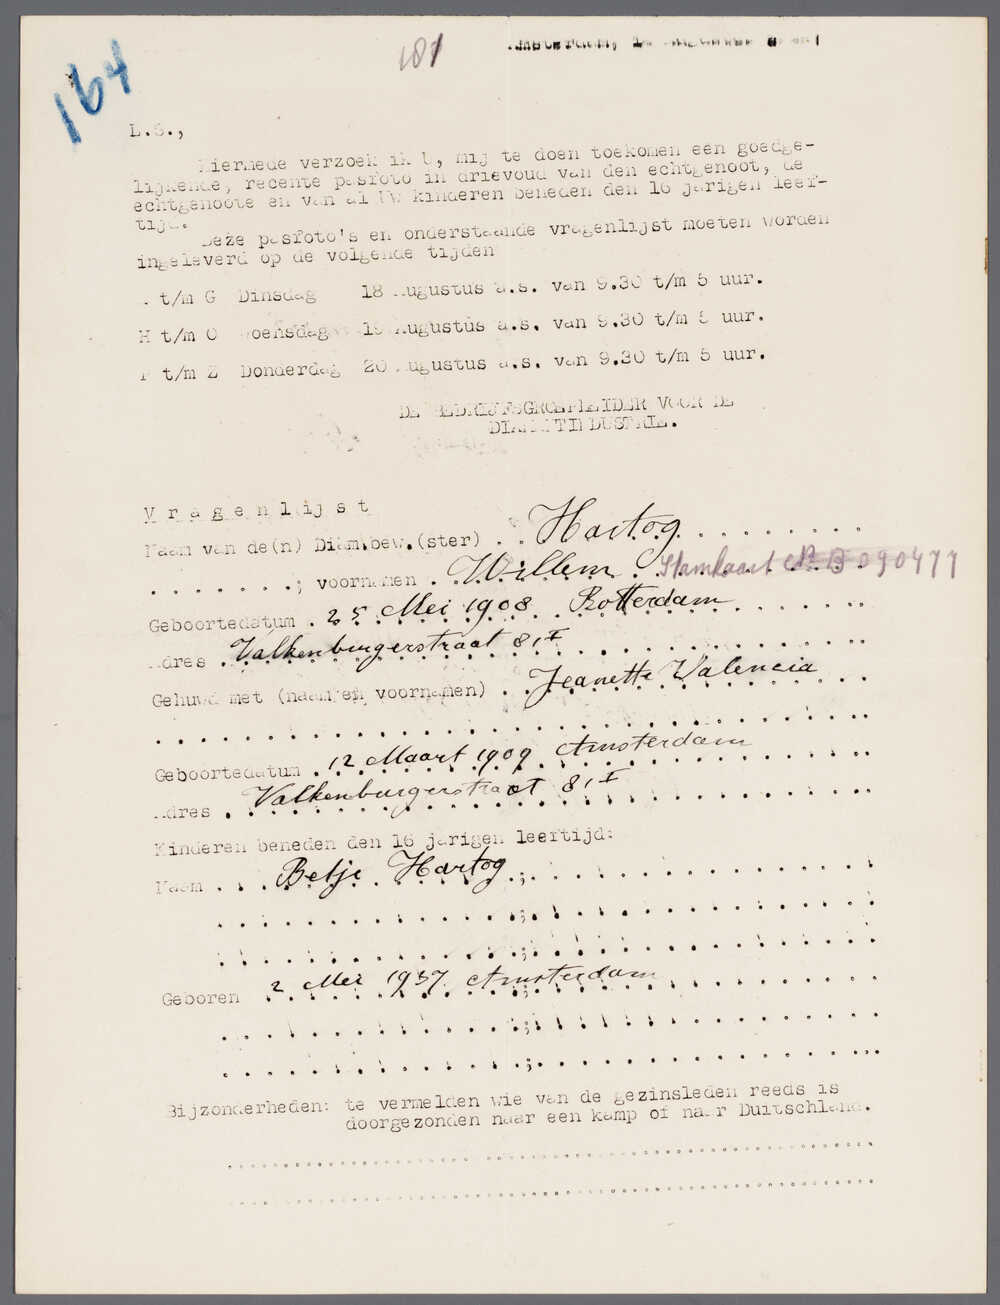 164
181
L.S.,
Hiermede verzoek ik U, mij te doen toekomen een goedge-
lijkende, recente pasfoto in drievoud van den echtgenoot, de
echtgenoote en van al Uw kinderen beneden den 16 jarigen leef-
tijd.
Deze pasfoto's en onderstaande vragenlijst moeten worden
ingeleverd op de volgende tijden
t/m G Dinsdag 18 Augustus a.s. van 9.30 t/m 5 uur.
H t/m O Woensdag 19 Augustus a.s. van 9.30 t/m 5 uur.
P t/m Z Donderdag 20 Augustus a.s. van 9.30 t/m 5 uur.
DE BEDRIJFSGROEPLEIDER VOOR DE
DIAMANTINDUSTRIE.
Vragenlijst
Naam van de(n) Diam.bew.(ster) . . Hartog . . . . . . . . .
. . . . . . . . .; voornamen . Willem . Stamkaart No B 090477
Geboortedatum . 25 Mei 1908 Rotterdam
Adres . Valkenburgerstraat 81 I
Gehuwd met (naam en voornamen) . . Jeanette Valencia
Geboortedatum . 12 Maart 1909 Amsterdam
Adres . Valkenburgerstraat 81 I
Kinderen beneden den 16 jarigen leeftijd:
Naam . . . Betje Hartog
Geboren 2 Mei 1937 Amsterdam
Bijzonderheden: te vermelden wie van de gezinsleden reeds is
doorgezonden naar een kamp of naar Duitschland.